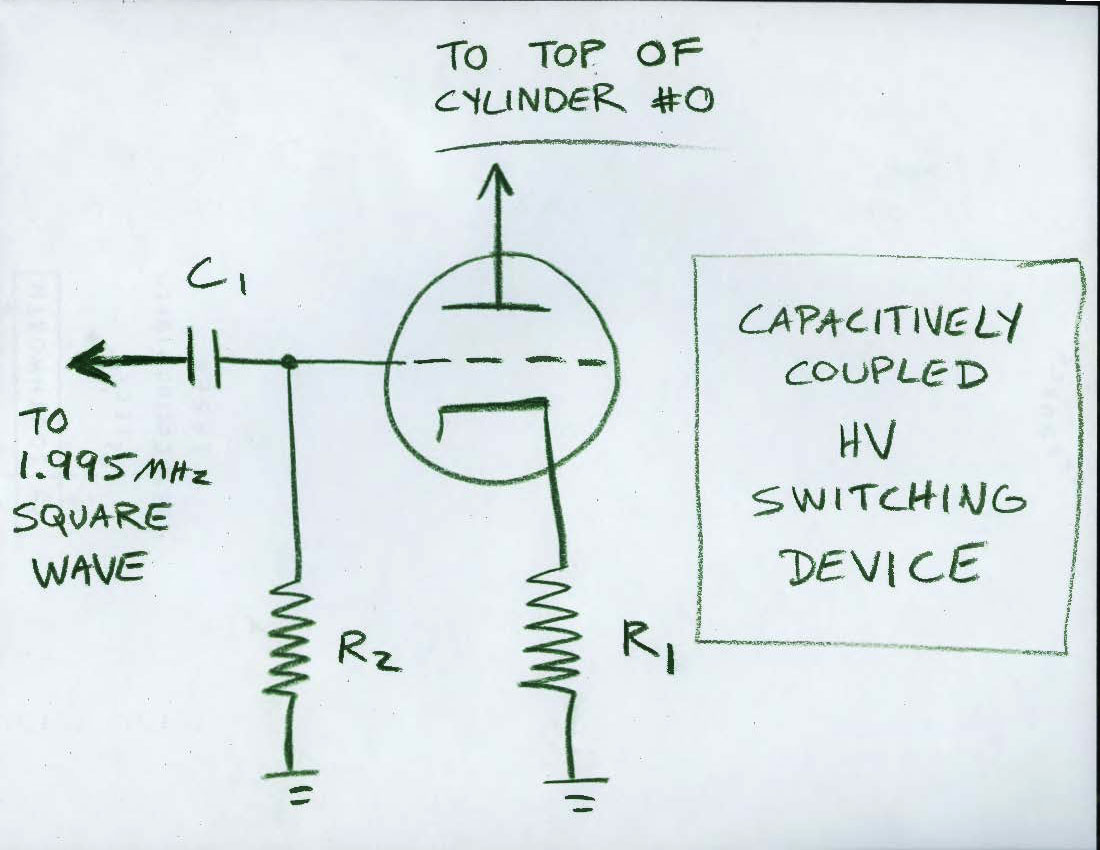 TO TOP OF
CYLINDER #0
C1
TO
1.995MHz
SQUARE
WAVE
R2
R1
CAPACITIVELY
COUPLED
HV
SWITCHING
DEVICE